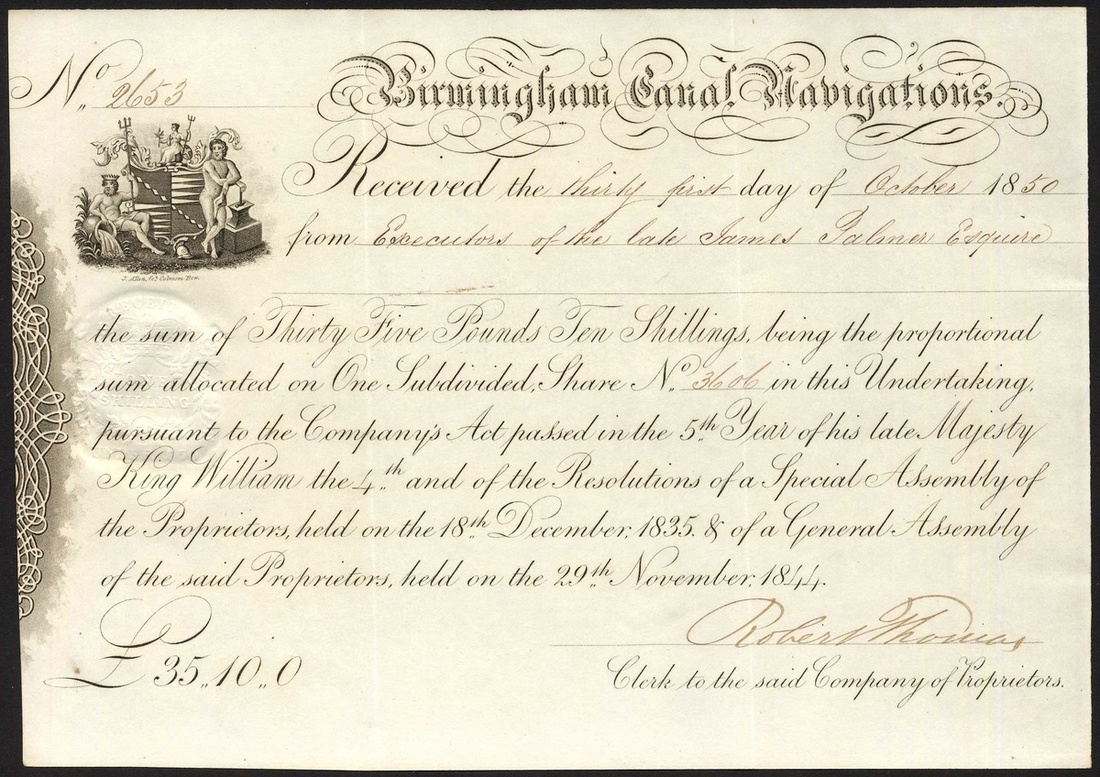 No. 2653
Birmingham Canal Navigations.
Received the thirty first day of October 1850
from Executors of the late James Palmer Esquire
the sum of Thirty Five Pounds Ten Shillings, being the proportional
sum allocated on One Subdivided Share No. 3606 in this Undertaking,
pursuant to the Company's Act passed in the 5th Year of his late Majesty
King William the 4th and of the Resolutions of a Special Assembly of
the Proprietors, held on the 18th December, 1835. & of a General Assembly
of the said Proprietors, held on the 29th November, 1844.
Robert Thomas
£35,,10,,0
Clerk to the said Company of Proprietors.
J. Allen, Colmore Row.
SHILLING